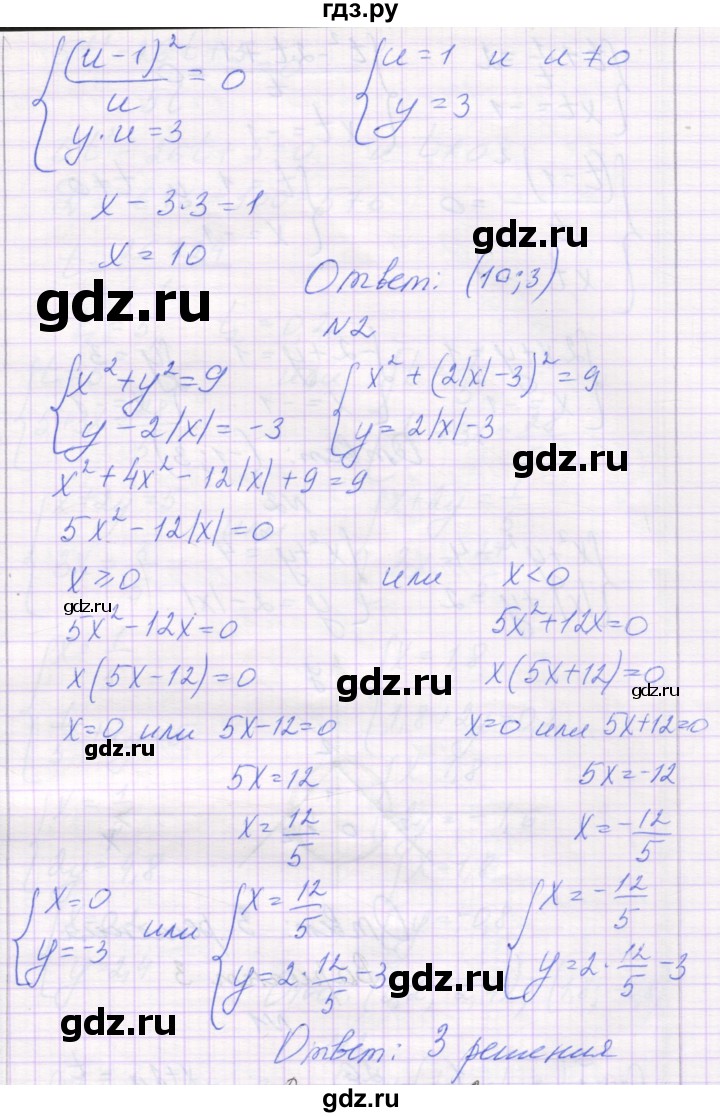 гдз.ру
{ (u-1)²/u = 0   { u = 1 и u ≠ 0
{ y·u = 3   { y = 3
x - 3·3 = 1
x = 10
gdz.ru
Ответ: (10;3)
gdz.ru
N2
{ x² + y² = 9   { x² + (2|x| - 3)² = 9
{ y - 2|x| = -3   { y = 2|x| - 3
gdz.ru
x² + 4x² - 12|x| + 9 = 9
5x² - 12|x| = 0
x ⩾ 0   или   x < 0
gdz.ru
5x² - 12x = 0   5x² + 12x = 0
x(5x - 12) = 0   gdz.ru   x(5x + 12) = 0
gdz.ru
x = 0 или 5x - 12 = 0   x = 0 или 5x + 12 = 0
gdz.ru
5x = 12   5x = -12
x = 12/5   x = -12/5
{ x = 0   или   { x = 12/5   { x = -12/5
{ y = -3   { y = 2·12/5 - 3   { y = 2·12/5 - 3
gdz.ru
gdz.ru
Ответ: 3 решения
gdz.ru